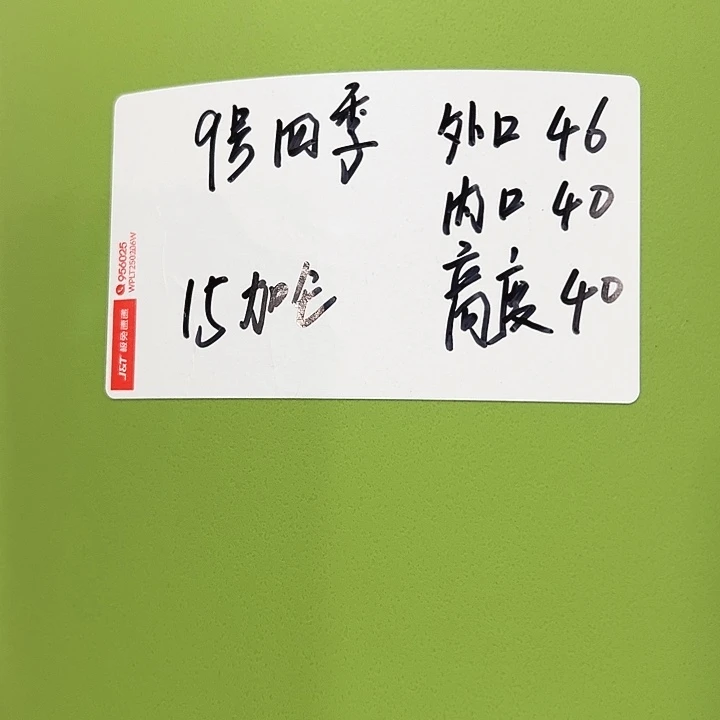 9号四季
15加仑
外口 46
内口 40
高度 40
956025
WPLT250306W
J&T 极兔速递